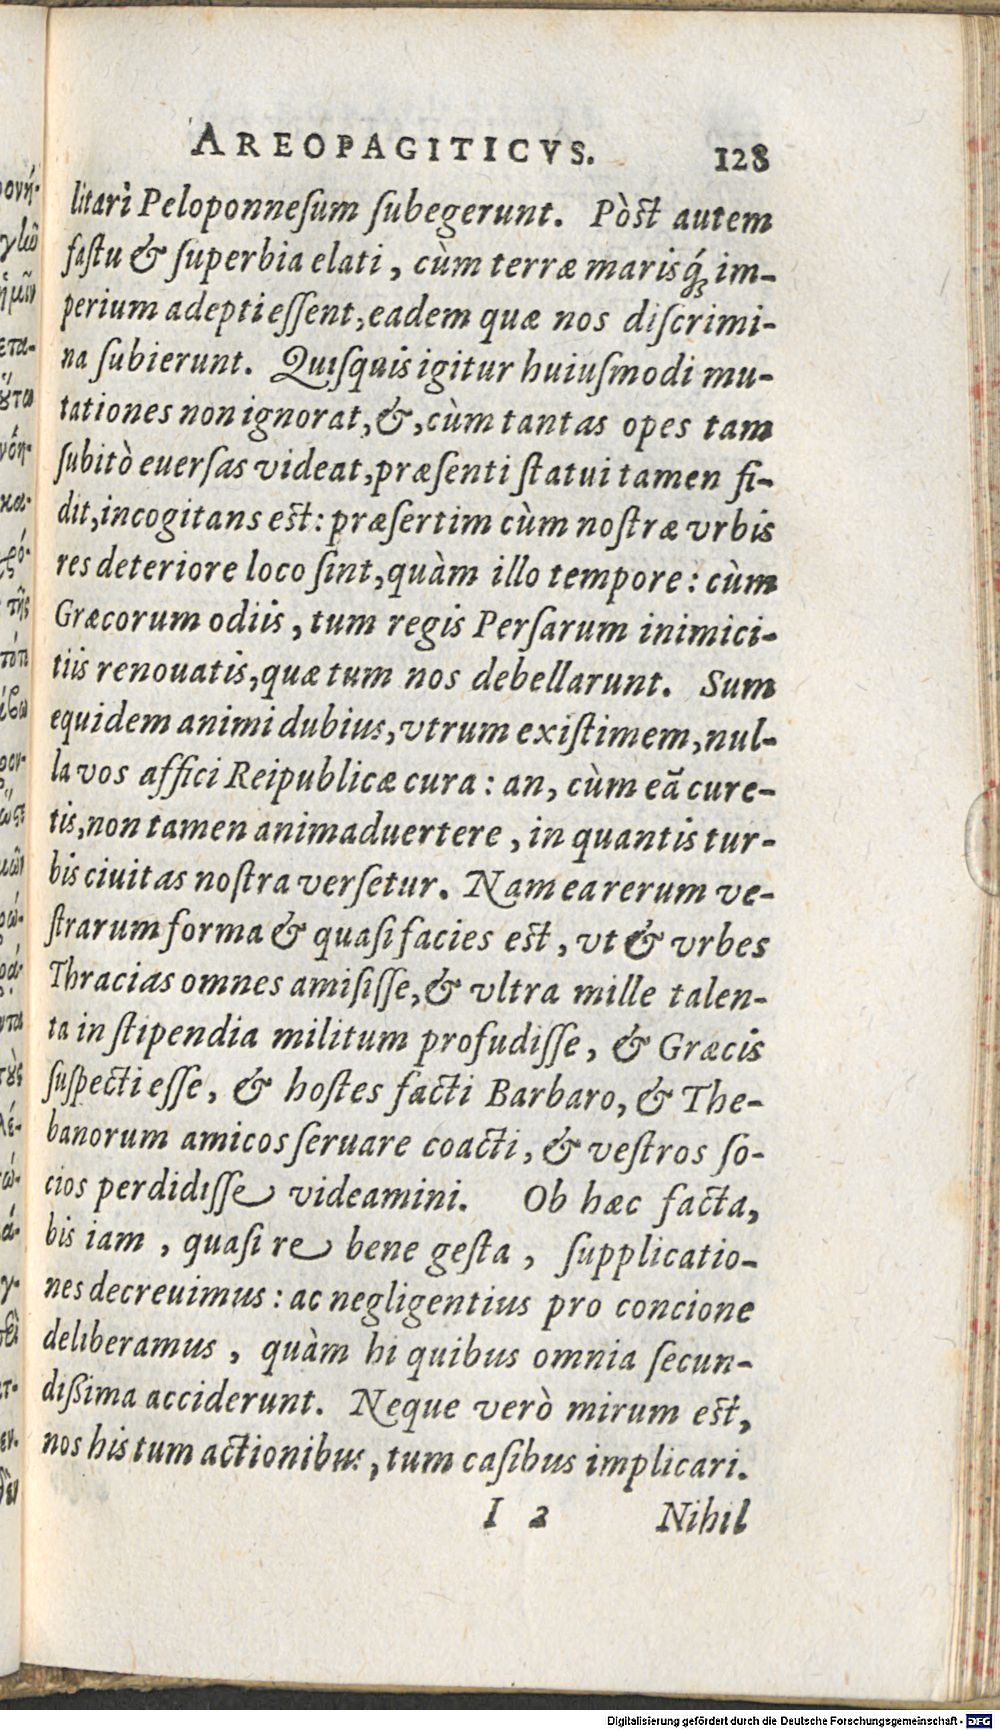 AREOPAGITICVS. 128
litari Peloponneſum ſubegerunt. Pòst autem
faſtu & ſuperbia elati, cùm terræ marisq́ꝫ im-
perium adepti eſſent, eadem quæ nos diſcrimi-
na ſubierunt. Quiſquis igitur huiuſmodi mu-
tationes non ignorat, &, cùm tantas opes tam
ſubitò euerſas videat, præſenti ſtatui tamen fi-
dit, incogitans est: præſertim cùm noſtræ vrbis
res deteriore loco ſint, quàm illo tempore: cùm
Græcorum odiis, tum regis Perſarum inimici-
tiis renouatis, quæ tum nos debellarunt. Sum
equidem animi dubius, vtrum exiſtimem, nul-
la vos affici Reipublicæ cura: an, cùm eā cure-
tis, non tamen animaduertere, in quantis tur-
bis ciuitas noſtra verſetur. Nam ea rerum ve-
ſtrarum forma & quaſi facies est, vt & vrbes
Thracias omnes amiſiſſe, & vltra mille talen-
ta in ſtipendia militum profudiſſe, & Græcis
ſuſpecti eſſe, & hoſtes facti Barbaro, & The-
banorum amicos ſeruare coacti, & veſtros ſo-
cios perdidiſſe videamini. Ob hæc facta,
bis iam, quaſi re bene geſta, ſupplicatio-
nes decreuimus: ac negligentius pro concione
deliberamus, quàm hi quibus omnia ſecun-
dißima acciderunt. Neque verò mirum est,
nos his tum actionibus, tum caſibus implicari.
I 2 Nihil
Digitalisierung gefördert durch die Deutsche Forschungsgemeinschaft - DFG